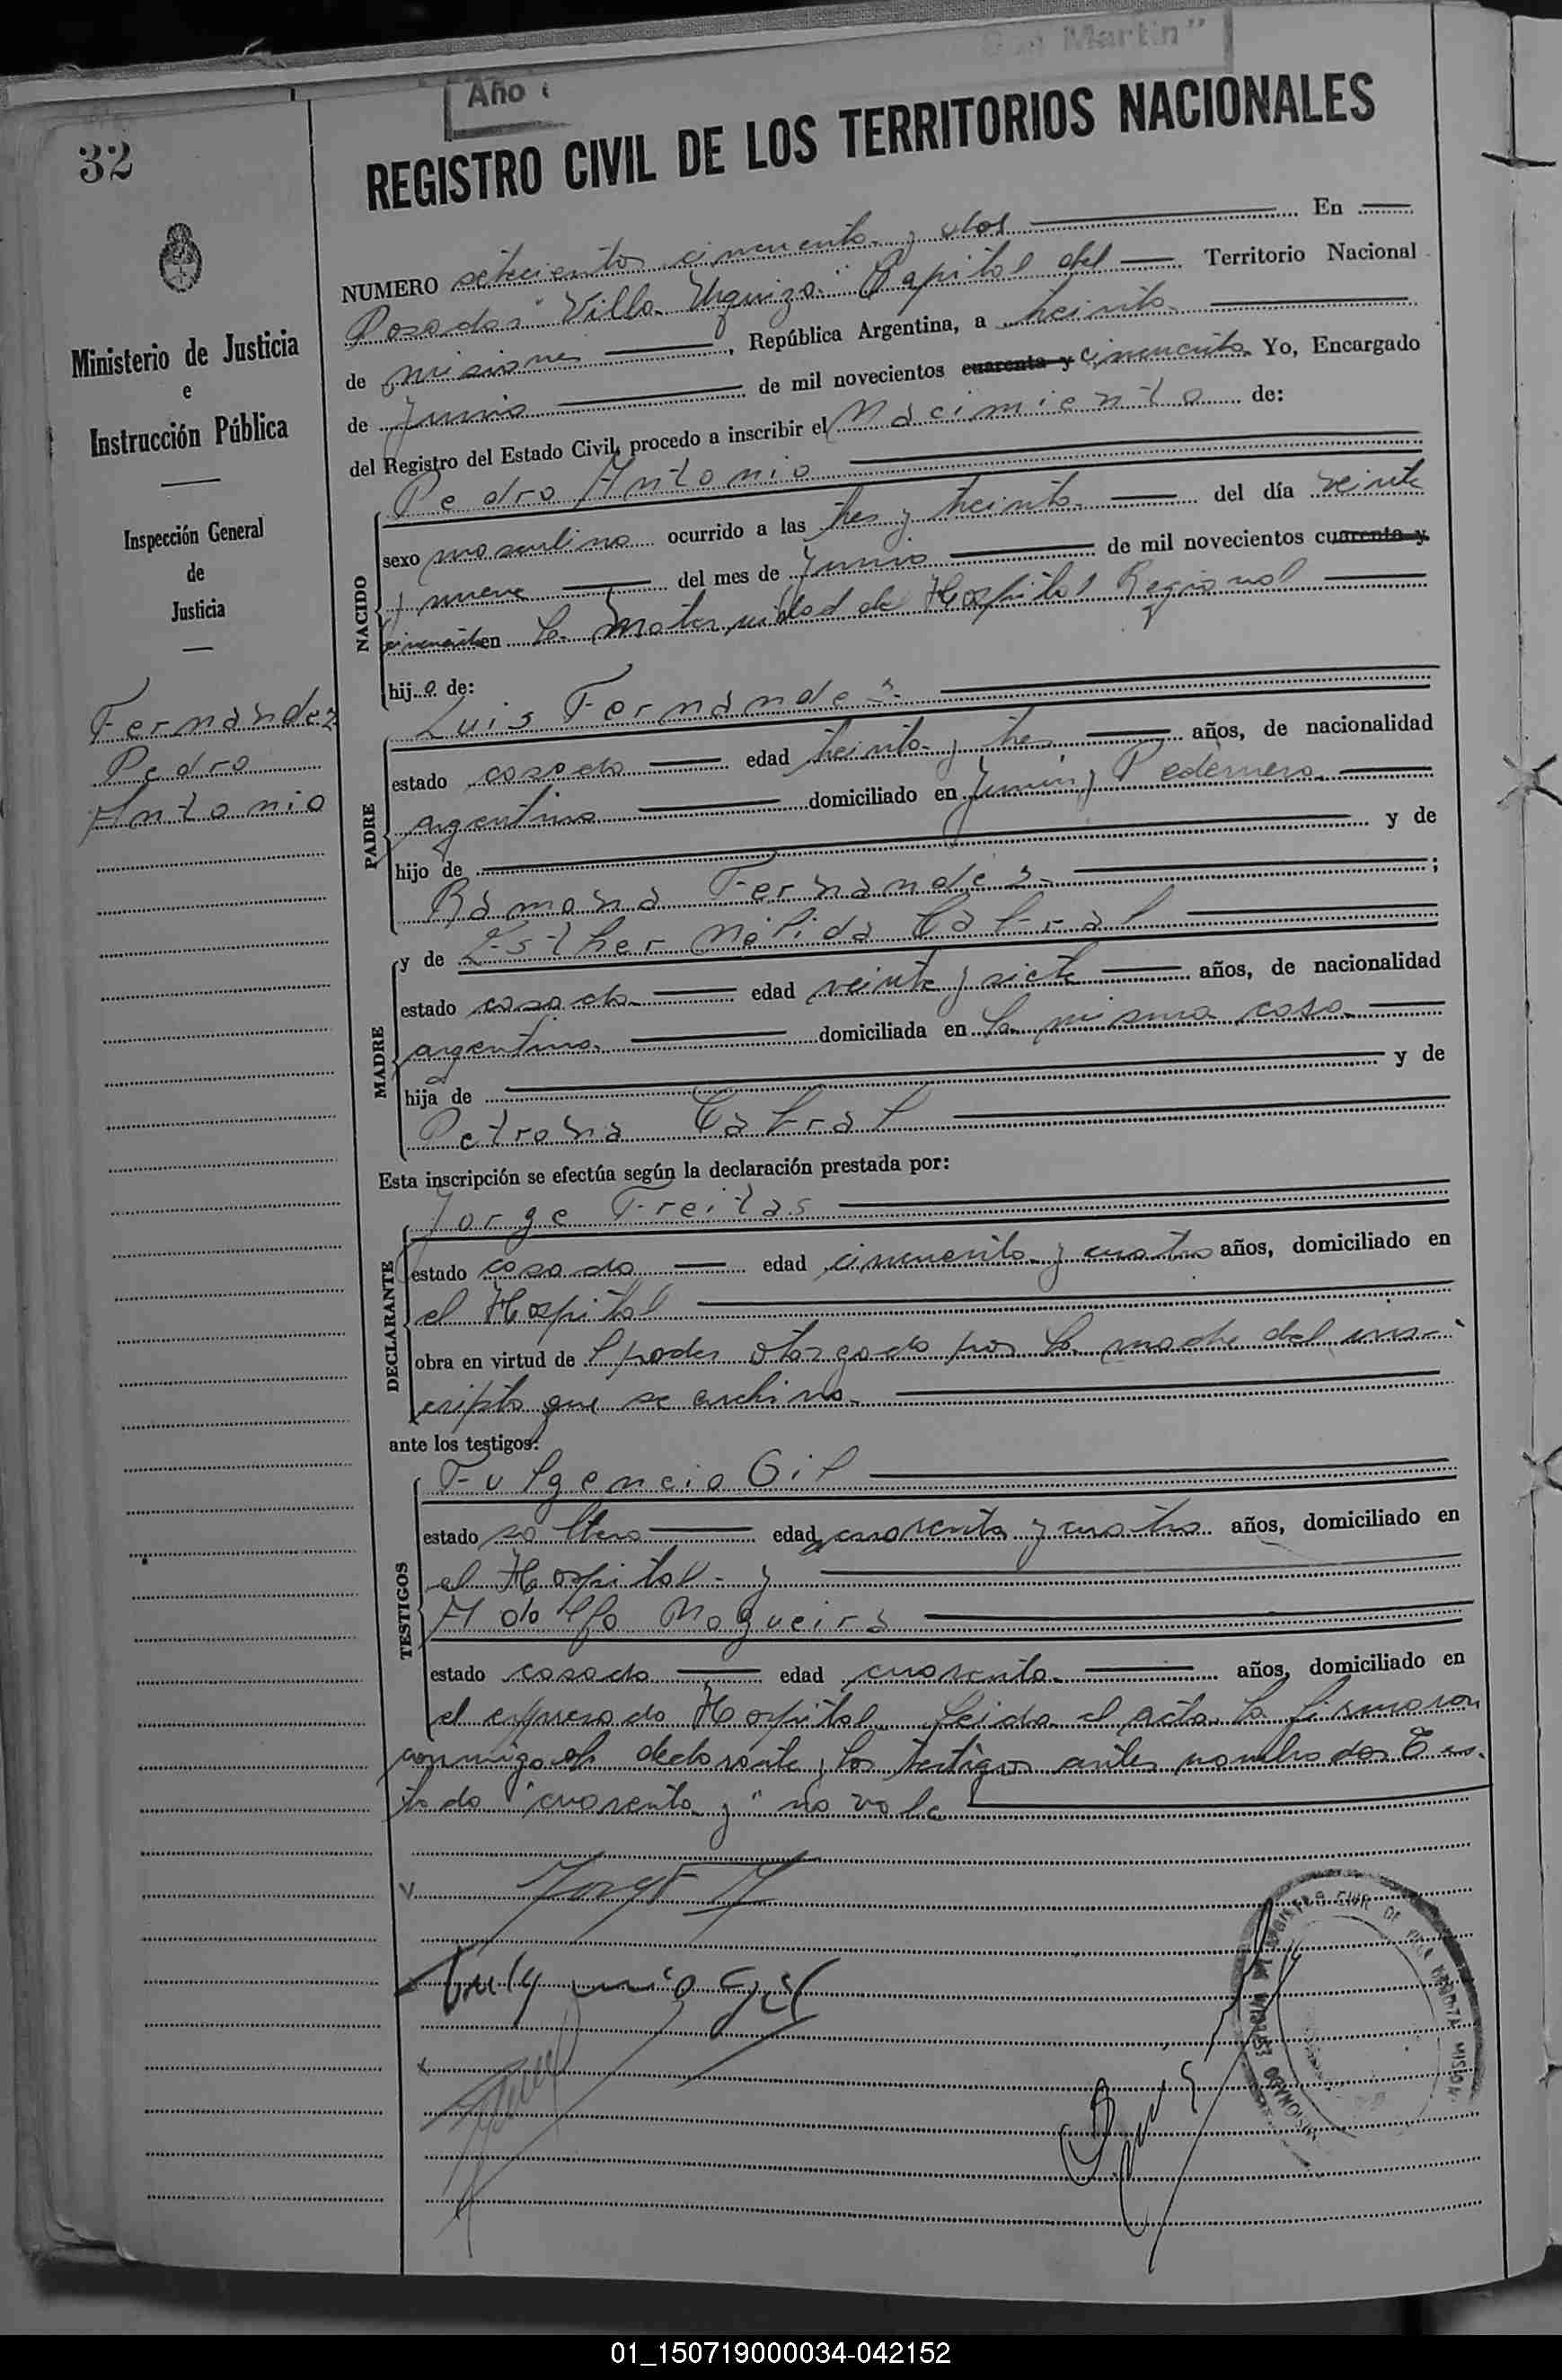 San Martin"
Año
32
REGISTRO CIVIL DE LOS TERRITORIOS NACIONALES
NUMERO setecientos cincuenta y dos En
Posadas "Villa Urquiza" Capital del Territorio Nacional
de Misiones, República Argentina, a treinta
de Junio de mil novecientos cuarenta y cincuenta Yo, Encargado
del Registro del Estado Civil, procedo a inscribir el Nacimiento de:
Ministerio de Justicia
e
Instrucción Pública
Inspección General
de
Justicia
Fernández
Pedro
Antonio
NACIDO
Pedro Antonio
sexo masculino ocurrido a las tres y treinta del día veinte
y nueve del mes de Junio de mil novecientos cuarenta y
cincuenta en la Maternidad de Hospital Regional
hijo de:
PADRE
Luis Fernández
estado casado edad treinta y tres años, de nacionalidad
argentino domiciliado en Junín y Pedernera
hijo de y de
Ramona Fernández;
MADRE
y de Esther Nélida Cabral
estado casada edad veinte y siete años, de nacionalidad
argentina domiciliada en la misma casa
hija de y de
Petrona Cabral
Esta inscripción se efectúa según la declaración prestada por:
DECLARANTE
Jorge Freitas
estado casado edad cincuenta y cuatro años, domiciliado en
el Hospital
obra en virtud de l poder otorgado por la madre del ins-
cripto que se archiva.
ante los testigos:
TESTIGOS
Fulgencio Gil
estado soltero edad cuarenta y cuatro años, domiciliado en
el Hospital - y
Adolfo Nogueira
estado casado edad cuarenta años, domiciliado en
el expresado Hospital. Leída el acta la firmaron
conmigo el declarante y los testigos antes nombrados Tes-
tado "cuarenta y" no vale
01_150719000034-042152